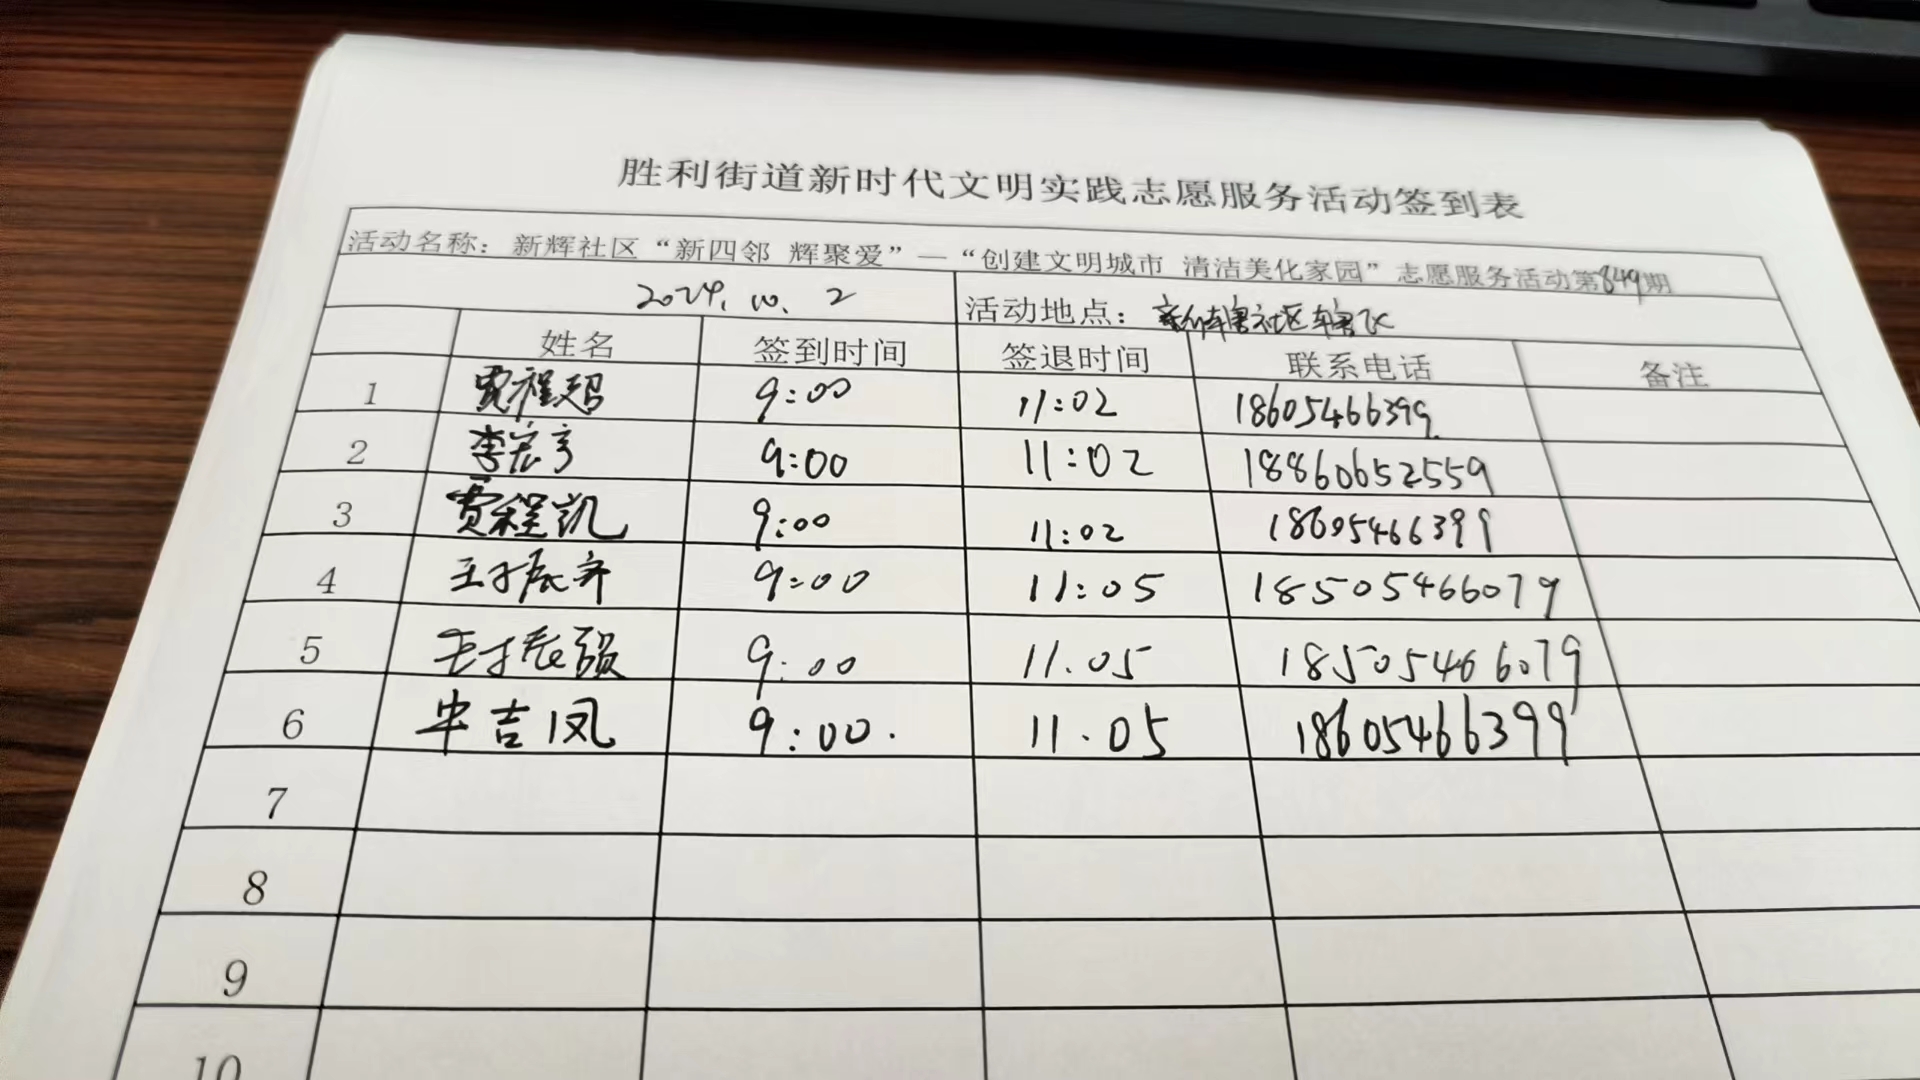 胜利街道新时代文明实践志愿服务活动签到表
活动名称：新辉社区“新四邻 辉聚爱”—“创建文明城市 清洁美化家园”志愿服务活动第849期
2024.10.2 活动地点：新辉社区辖区
姓名 签到时间 签退时间 联系电话 备注
1 贾程超 9:00 11:02 18605466399
2 李宏亨 9:00 11:02 18860652559
3 贾程凯 9:00 11:02 18605466399
4 9:00 11:05 18505466079
5 9:00 11.05 18505466079
6 牛吉凤 9:00. 11.05 18605466399
7
8
9
10